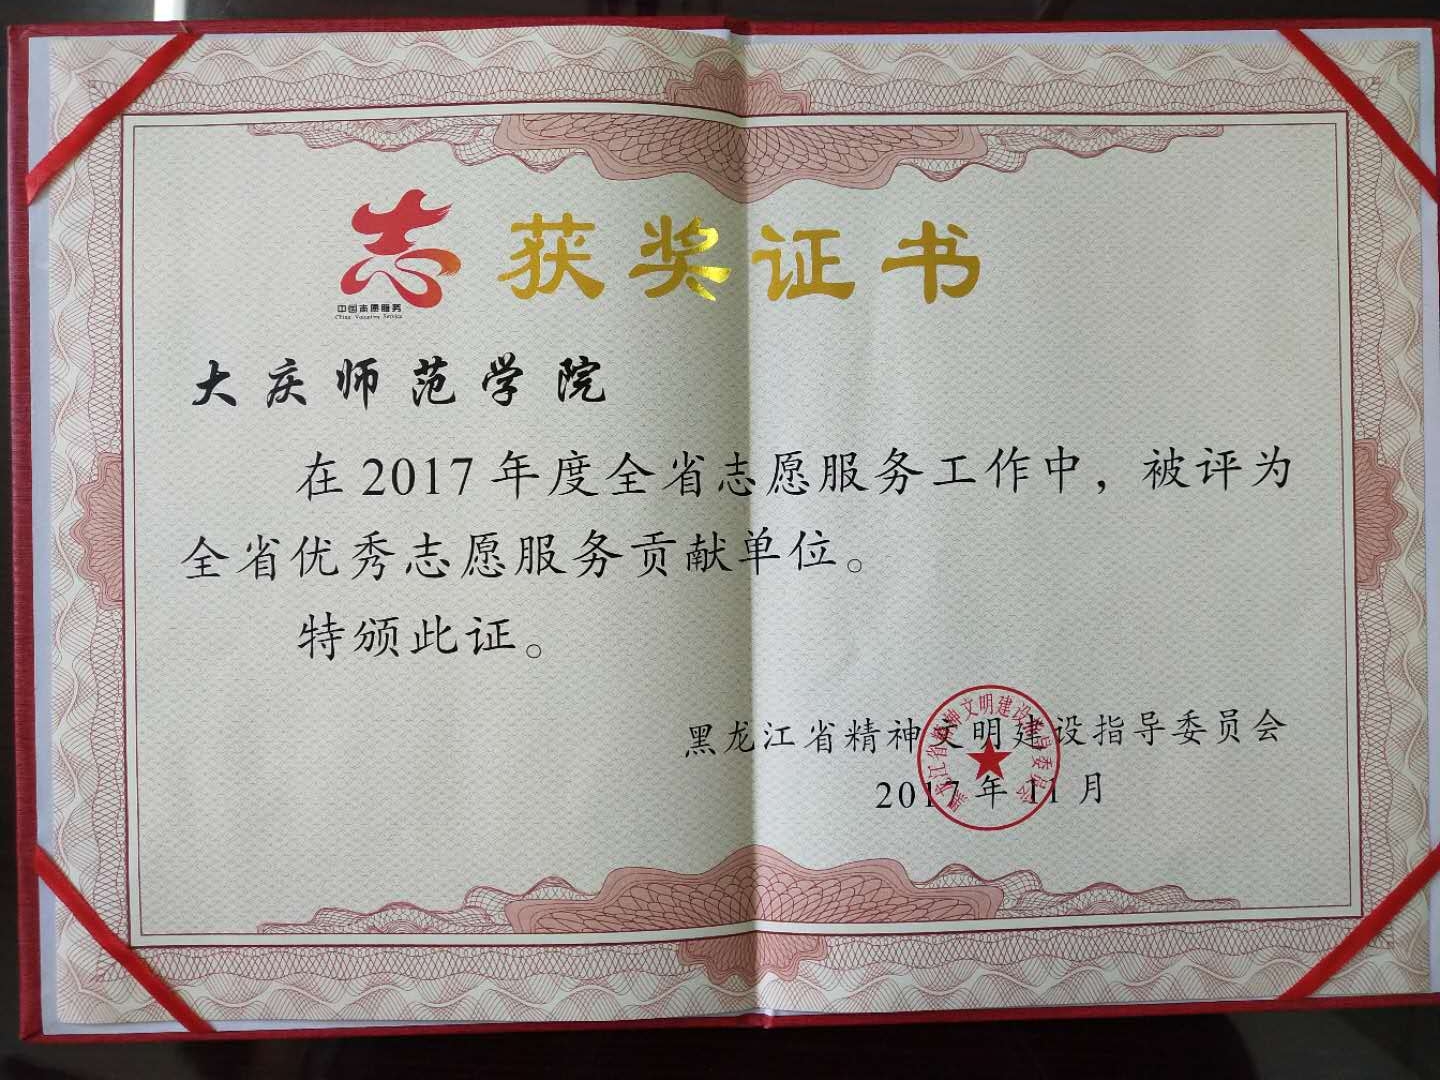 志 获奖证书
中国志愿服务
China Voluntary Service
大庆师范学院
在2017年度全省志愿服务工作中，被评为
全省优秀志愿服务贡献单位。
特颁此证。
黑龙江省精神文明建设指导委员会
2017年11月
黑龙江省精神文明建设指导委员会